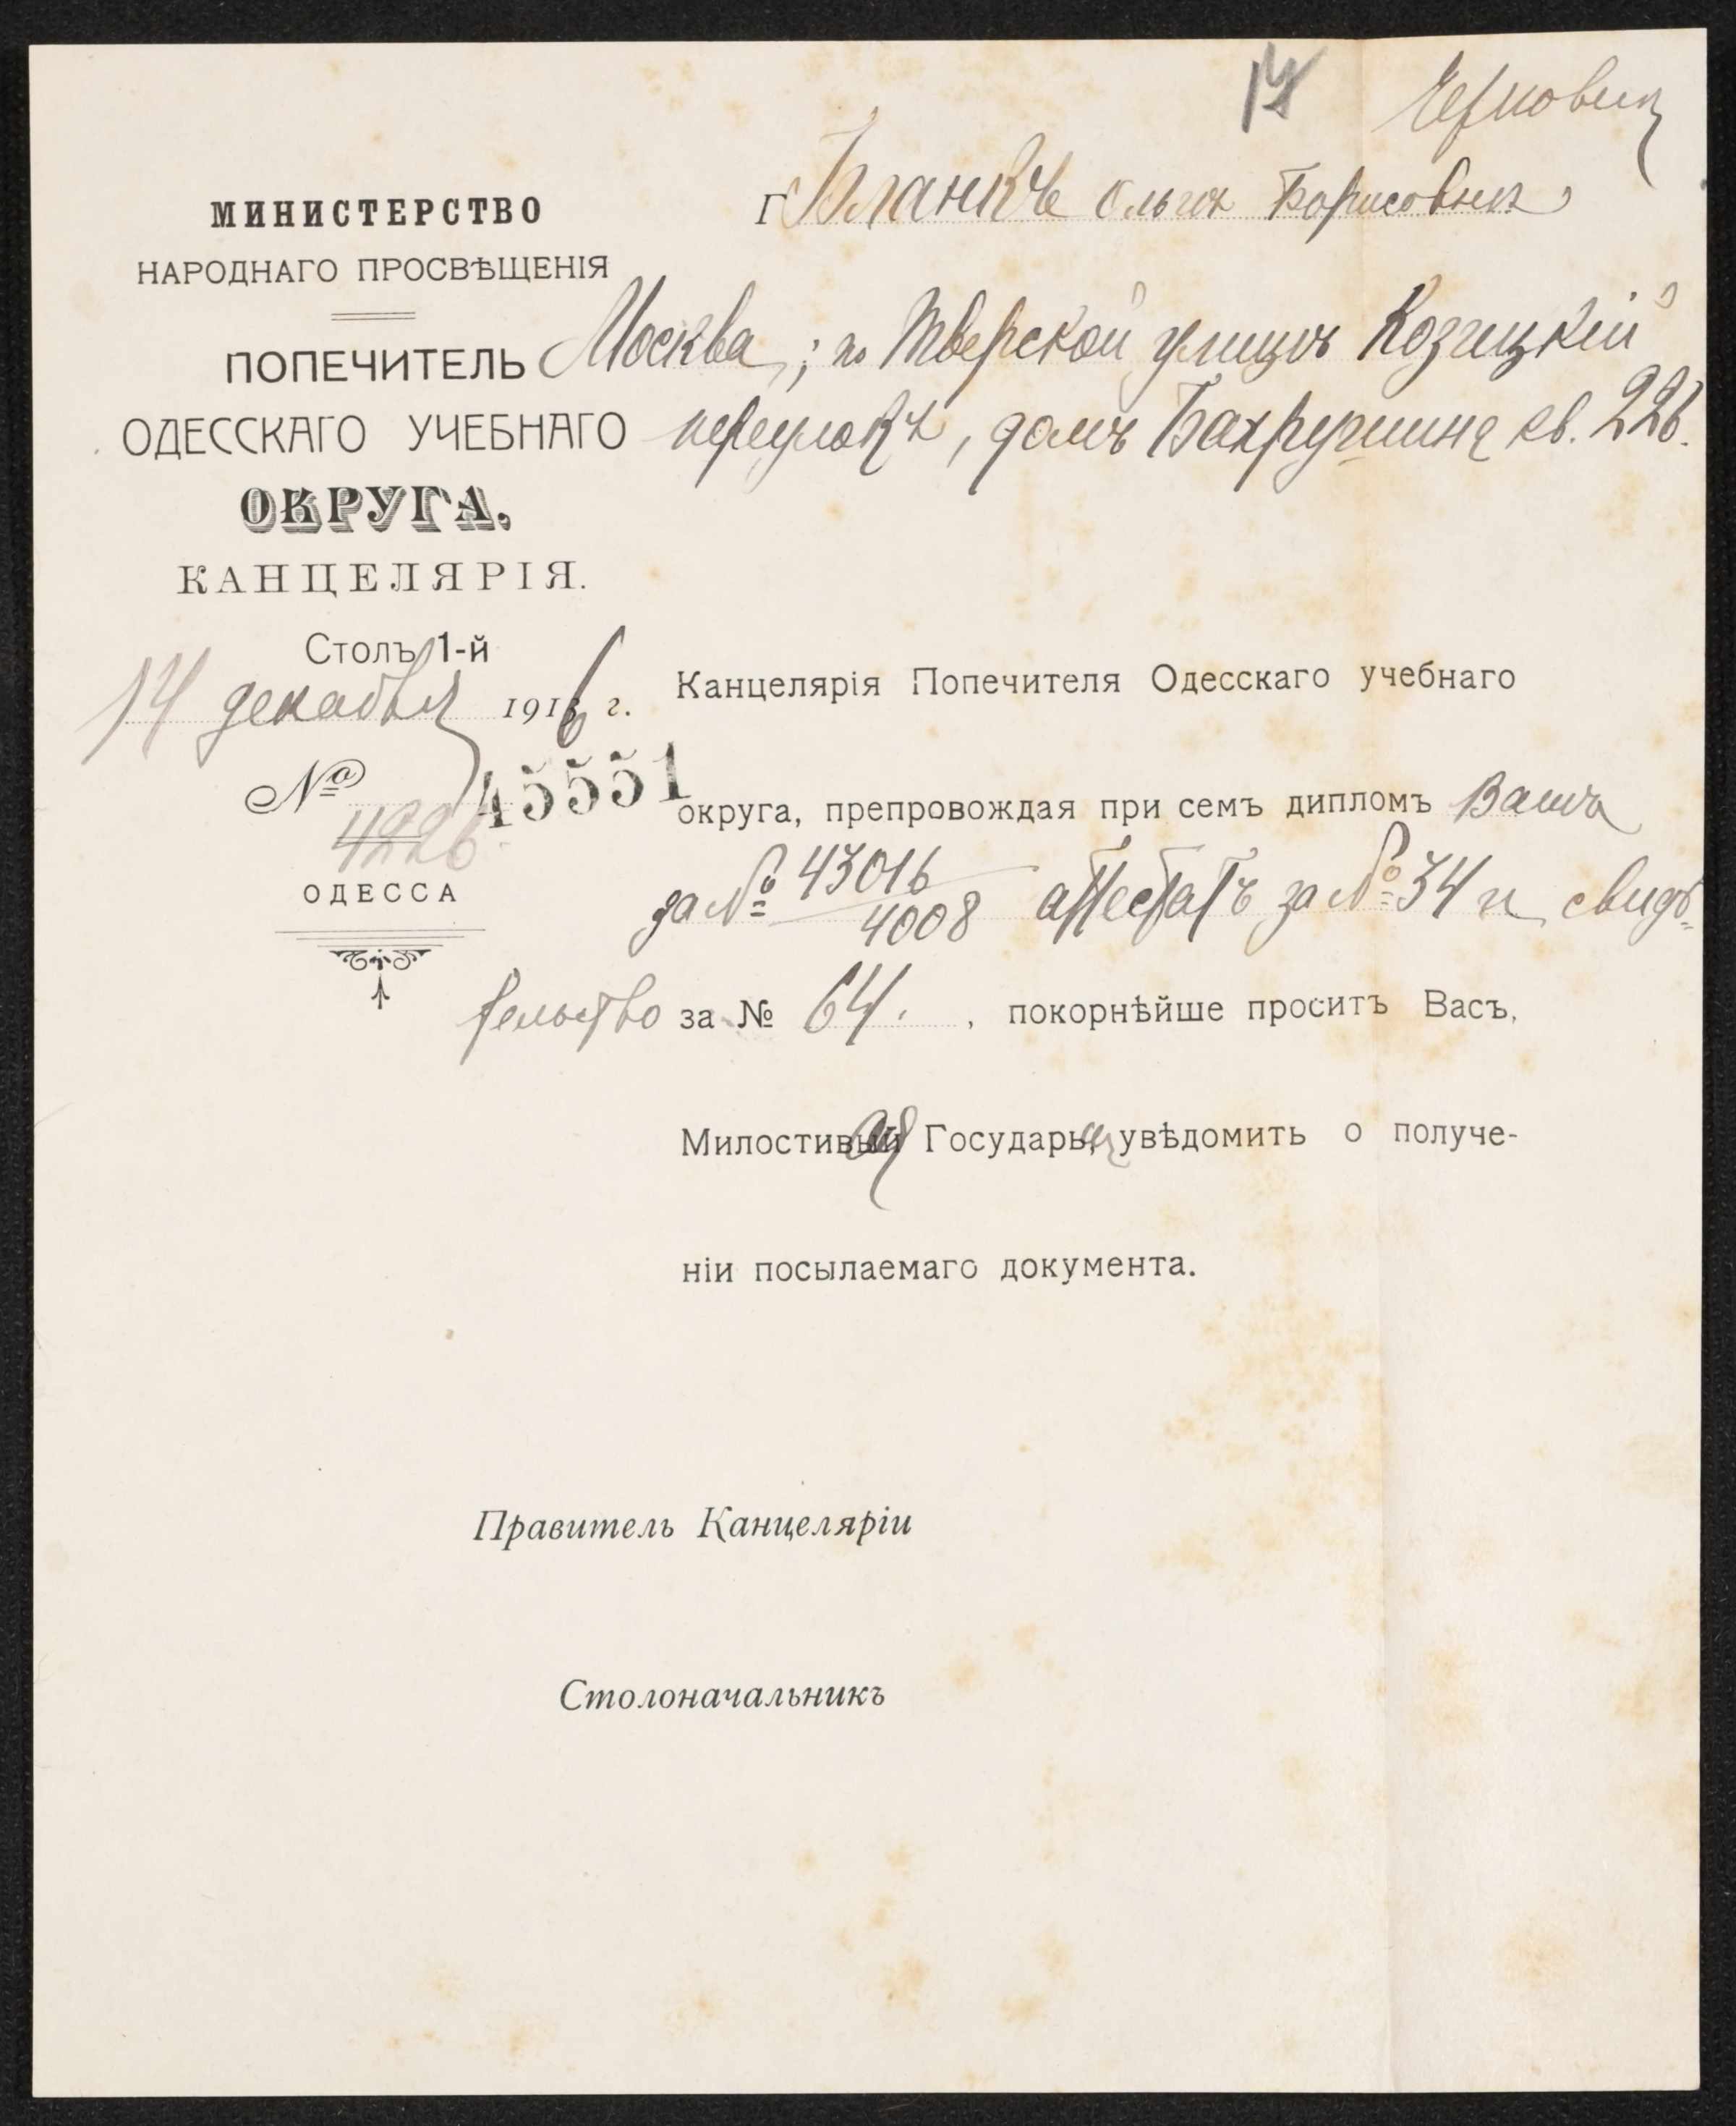 17
МИНИСТЕРСТВО
НАРОДНАГО ПРОСВѢЩЕНІЯ
ПОПЕЧИТЕЛЬ
ОДЕССКАГО УЧЕБНАГО
ОКРУГА.
КАНЦЕЛЯРІЯ.
Столъ 1-й
14 декабря 1916 г.
№ 45551
4226.
ОДЕССА
Г Бланкъ Ольгѣ Борисовнѣ
Москва, по Тверской улицѣ Козицкій
переулокъ, домъ Бахрушина кв. 226.
Канцелярія Попечителя Одесскаго учебнаго
округа, препровождая при семъ дипломъ Вашъ
за № 43016/4008 аттестатъ за № 34 и свидѣ=
тельство за № 64. , покорнѣйше проситъ Васъ,
Милостивая Государыня, увѣдомить о получе-
ніи посылаемаго документа.
Правитель Канцеляріи
Столоначальникъ